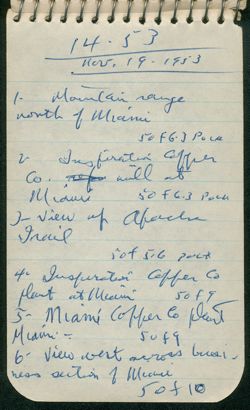 14-53
Nov. 19-1953
1- Mountain range
north of Miami
50 f 6.3 Pola
2- Inspiration Copper
Co. mill at
Miami 50 f 6.3 Pola
3- View up Apache
Trail
50 f 5.6 Pola
4- Inspiration Copper Co
plant at Miami 50 f 9
5- Miami Copper Co plant
Miami - 50 f 9
6- View west across busi-
ness section of Miami
50 f 10